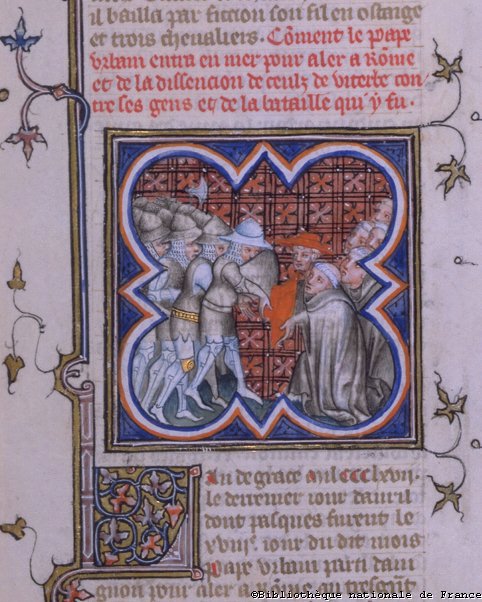 il bailla par fiction son fil en ostaige
et trois chevaliers. Coment le pape
urbam entra en mer pour aler a Rome
et de la dissencion de ceulz de viterbe con
tre ses gens et de la bataille qui y fu.
Lan de grace mil CCC lxvii.
le derrenier iour dauril
dont pasques furent le
xviiie. iour du dit mois
pape urbam parti daui
gnon pour aler a Rome
©Bibliothèque nationale de France